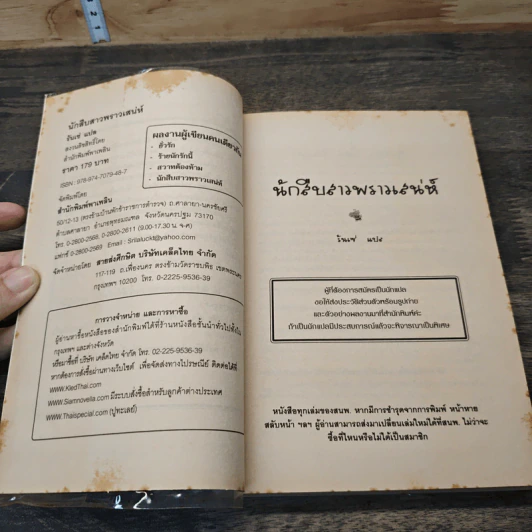 นักสืบสาวพราวเสน่ห์
วันเซ่ แปล
สงวนลิขสิทธิ์โดย
สำนักพิมพ์พาเพลิน
ราคา 179 บาท
ISBN : 978-974-7079-48-7
จัดพิมพ์โดย
สำนักพิมพ์พาเพลิน
50/12-13 (ตรงข้ามบ้านพักข้าราชการตำรวจ) ถ.ศาลายา-นครชัยศรี
ตำบลศาลายา อำเภอพุทธมณฑล จังหวัดนครปฐม 73170
โทร 0-2800-2569, 0-2800-2611 (9.00-17.30 น. จ-ศ)
แฟกซ์ 0-2800-2569 Email : Srilaluckt@yahoo.com
จัดจำหน่ายโดย สายส่งศึกษิต บริษัทเคล็ดไทย จำกัด
117-119 ถ.เฟื่องนคร ตรงข้ามวัดราชบพิธ เขตพระนคร
กรุงเทพฯ 10200 โทร. 0-2225-9536-39
ผลงานผู้เขียนคนเดียวกัน
- ยั่วรัก
- ร้ายนักรักนี้
- สวาทต้องห้าม
- นักสืบสาวพราวเสน่ห์
การวางจำหน่าย และการหาซื้อ
ผู้อ่านหาซื้อหนังสือของสำนักพิมพ์ได้ที่ร้านหนังสือชั้นนำทั่วไปทั้งใน
กรุงเทพฯ และต่างจังหวัด
หรือมาซื้อที่ บริษัท เคล็ดไทย จำกัด โทร. 02-225-9536-39
หากต้องการสั่งซื้อผ่านทางเว็บไซต์ เพื่อจัดส่งทางไปรษณีย์ ติดต่อได้ที่
www.KledThai.com
www.Siamnovella.com มีระบบสั่งซื้อสำหรับลูกค้าต่างประเทศ
www.Thaispecial.com (ปูทะเลย์)
นักสืบสาวพราวเสน่ห์
วันเซ่ แปล
ผู้ที่ต้องการสมัครเป็นนักแปล
ขอให้ส่งประวัติส่วนตัวพร้อมรูปถ่าย
และตัวอย่างผลงานมาที่สำนักพิมพ์ค่ะ
ถ้าเป็นนักแปลมีประสบการณ์แล้วจะพิจารณาเป็นพิเศษ
หนังสือทุกเล่มของสนพ. หากมีการชำรุดจากการพิมพ์ หน้าหาย
สลับหน้า ฯลฯ ผู้อ่านสามารถส่งมาเปลี่ยนเล่มใหม่ได้ที่สนพ. ไม่ว่าจะ
ซื้อที่ไหนหรือไม่ได้เป็นสมาชิก